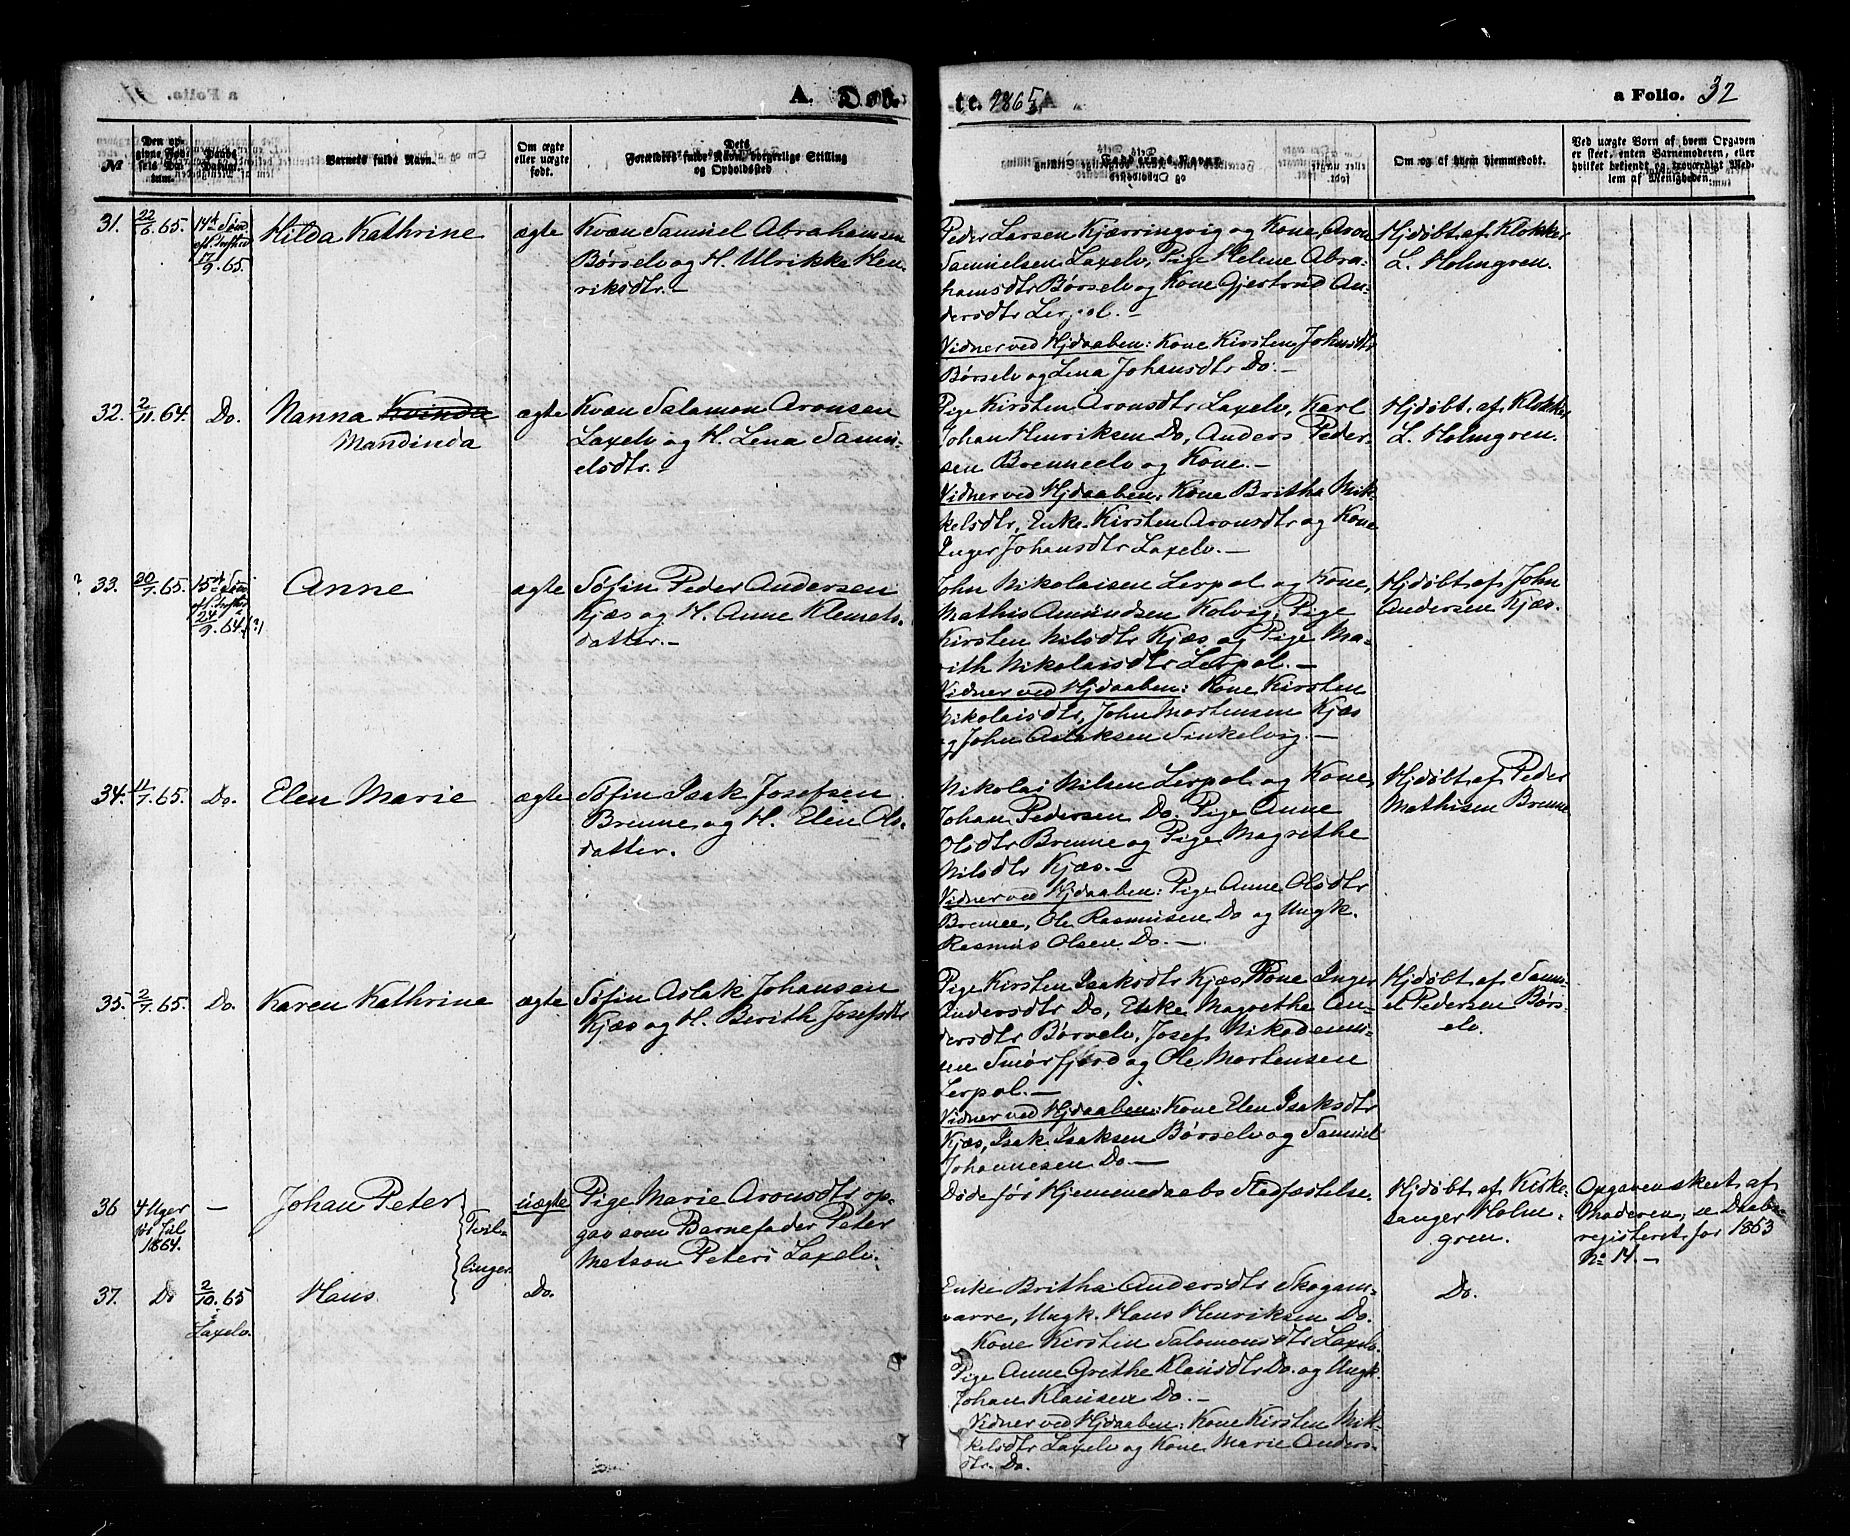 A. Døb-
te. 1865. a Folio. 32
№
Den opgivne Fødselsdatum.
Daabsdatum.
Barnets fulde Navn.
Om ægte eller uægte født.
Dets Forældres fulde Navn, borgerlige Stilling og Opholdssted
Om og af hvem hjemmedøbt.
Ved uægte Børn af hvem Opgaven er skeet, enten Barnemoderen, eller hvilket bekjendt og troværdigt Medlem af Menigheden.
31. 22/6 65. 14de Sønd. eft. Trefold. 17/9. 65. Hilda Kathrine ægte
Kvæn Samuel Abrahamsen
Børselv og H. Ulrikka Hen-
riksdtr. –
Peder Larsen Kjærringvig og Kone, Aron
Samuelsen Laxelv, Pige Helene Abra-
hamsdtr Børselv og Kone Gjertrud An-
dersdtr Lerpol. –
Vidner ved Hjdaaben: Kone Kirsten Johnsdtr
Børselv og Lena Johansdtr Do. –
Hjdøbt af Klokker
L. Holmgren.
32. 2/11. 64. Do. Nanna Kvinda
Mandinda
ægte
Kvæn Salamon Aronsen
Laxelv og H. Lena Samu-
elsdtr. –
Pige Kirsten Aronsdtr Laxelv, Karl
Johan Henriksen Do, Anders Peder-
sen Brenneelv og Kone. –
Vidner ved Hjdaaben: Kone Britha Mik-
kelsdtr, Enke Kirsten Aronsdtr og Kone
Inger Johansdtr Laxelv. –
Hjdøbt af Klokker
L. Holmgren.
? 33. 30/7. 65. 15de Sønd. eft. Trefold. 24/9. 64. (?) Anne ægte
Søfin Peder Andersen
Kjæs og H. Anne Klemets-
datter. –
John Nikolaisen Lerpol og Kone,
Mathis Amundsen Kolvig, Pige
Kirsten Nilsdtr Kjæs og Pige Ma-
rith Nikolaisdtr Lerpol. –
Vidner ved Hjdaaben: Kone Kirsten
Nikolaisdtr, John Mortensen Kjæs
og John Aslaksen Sinkelvig. –
Hjdøbt af John
Andersen Kjæs.
34. 11/7. 65. Do. Elen Marie ægte
Søfin Isak Josefsen
Brenne og H. Elen Ols-
datter.
Nikolai Nilsen Lerpol og Kone,
Johan Pedersen Do. Pige Anne
Olsdtr Brenne og Pige Magrethe
Nilsdtr Kjæs. –
Vidner ved Hjdaaben: Pige Anne Olsdtr
Brenne, Ole Rasmusen Do og Ungk.
Rasmus Olsen Do. –
Hjdøbt af Peder
Mathisen Brenne
35. 2/7. 65. Do. Karen Kathrine ægte
Søfin Aslak Johansen
Kjæs og H. Berith Josefsdtr
Pige Kirsten Isaksdtr Kjæs, Kone Inger
Andersdtr Do, Enke Magrethe An-
dersdtr Børselv, Josef Nikodemu-
sen Smørfjord og Ole Mortensen
Lerpol. –
Vidner ved Hjdaaben: Kone Elen Isaksdtr
Kjæs, Isak Isaksen Børselv og Samuel
Johannesen Do. –
Hjdøbt af Samu-
el Pedersen Børs-
elv.
36 4 Uger før Jul 1864. – Johan Peter uægte
Tvil-
linger.
Pige Marie Aronsdtr op-
gav som Barnefader Peter
Matson Peters Laxelv.
Døde før Hjemmedaabs Stadfæstelse.
Hjdøbt af Kirke-
sanger Holm-
gren.
Opgaven skeet af
Moderen, se Daabs-
registeret for 1863
No 14. –
37. Do 2/10. 65 i Laxelv. Hans. Do.
Enke Britha Andersdtr Skogan-
varre, Ungk. Hans Henriksen Do.
Kone Kirsten Salomonsdtr Laxelv.
Pige Anne Grethe Klausdtr Do. og Ungk.
Johan Klausen Do. –
Vidner ved Hjdaaben: Kone Kirsten Mik-
kelsdtr Laxelv og Kone Marie Anders-
dtr. Do.
Do.